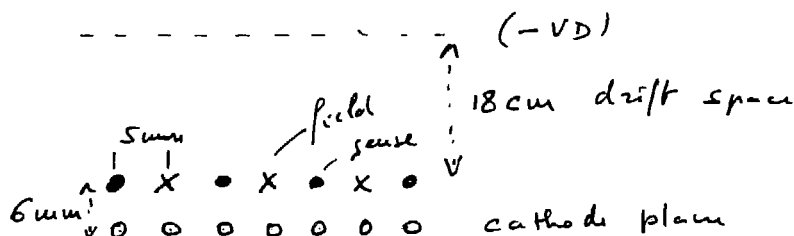 (-VD)
18cm drift space
field
5mm
sense
6mm
cathode plane